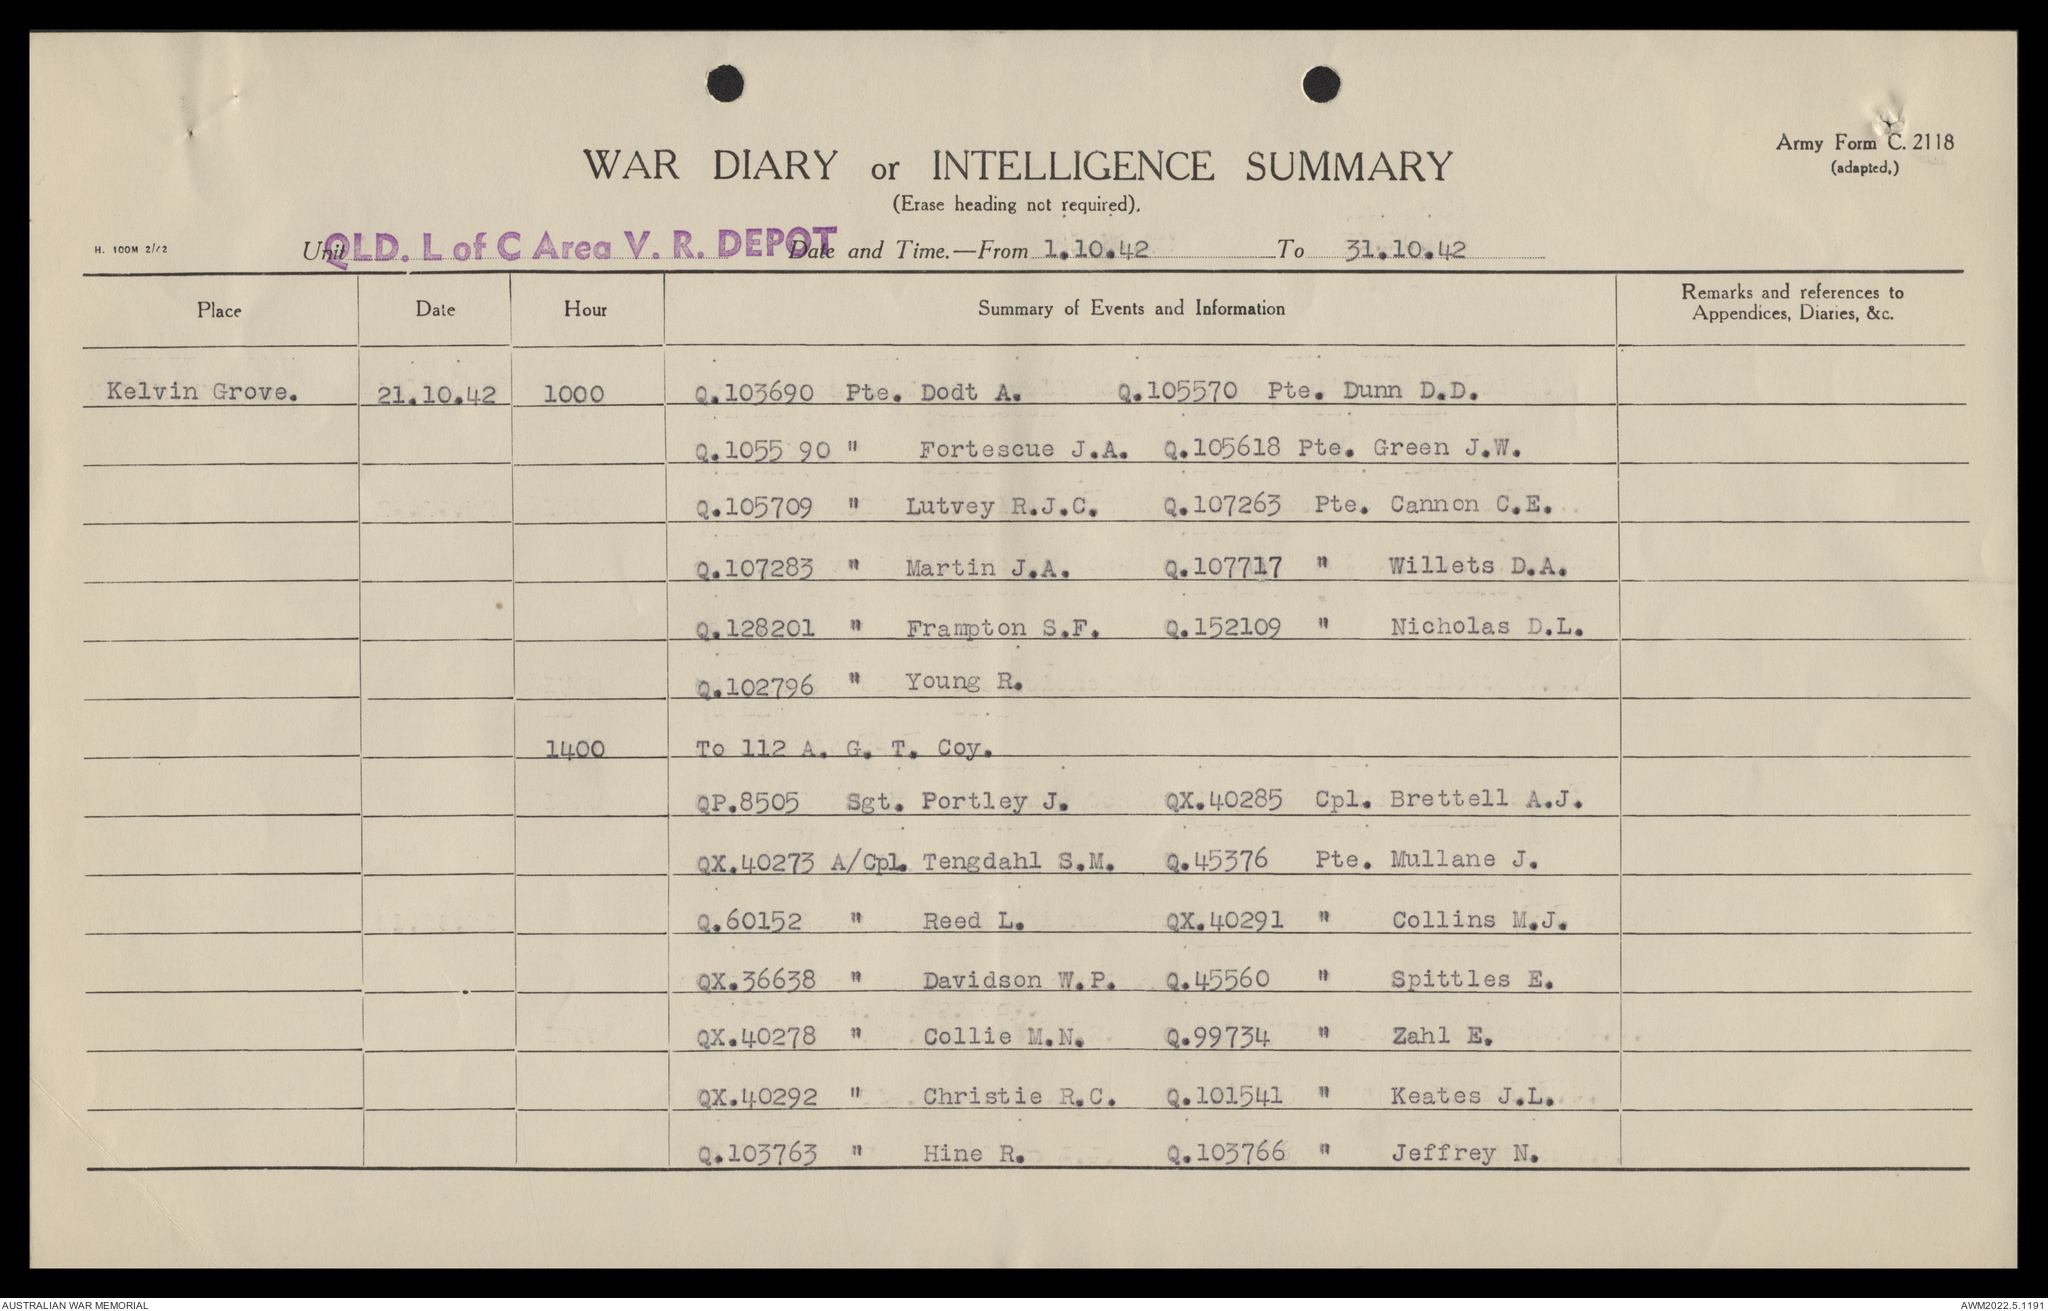 Army Form C. 2118
(adapted.)
WAR DIARY or INTELLIGENCE SUMMARY
(Erase heading not required).
H. 100M 2/42
Unit QLD. L of C Area V. R. DEPOT Date and Time.—From 1.10.42 To 31.10.42
Place Date Hour Summary of Events and Information Remarks and references to
Appendices, Diaries, &c.
Kelvin Grove. 21.10.42 1000 Q.103690 Pte. Dodt A. Q.105570 Pte. Dunn D.D.
Q.1055 90 " Fortescue J.A. Q.105618 Pte. Green J.W.
Q.105709 " Lutvey R.J.C. Q.107263 Pte. Cannon C.E.
Q.107283 " Martin J.A. Q.107717 " Willets D.A.
Q.128201 " Frampton S.F. Q.152109 " Nicholas D.L.
Q.102796 " Young R.
1400 To 112 A. G. T. Coy.
QP.8505 Sgt. Portley J. QX.40285 Cpl. Brettell A.J.
QX.40273 A/Cpl. Tengdahl S.M. Q.45376 Pte. Mullane J.
Q.60152 " Reed L. QX.40291 " Collins M.J.
QX.36638 " Davidson W.P. Q.45560 " Spittles E.
QX.40278 " Collie M.N. Q.99734 " Zahl E.
QX.40292 " Christie R.C. Q.101541 " Keates J.L.
Q.103763 " Hine R. Q.103766 " Jeffrey N.
AUSTRALIAN WAR MEMORIAL AWM2022.5.1191